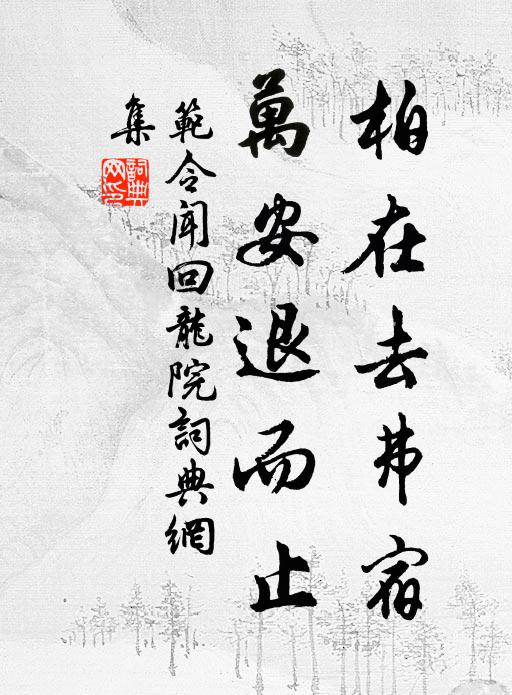 柏在去弗宿
萬安退而止
範令聞回龍院詞典網
集